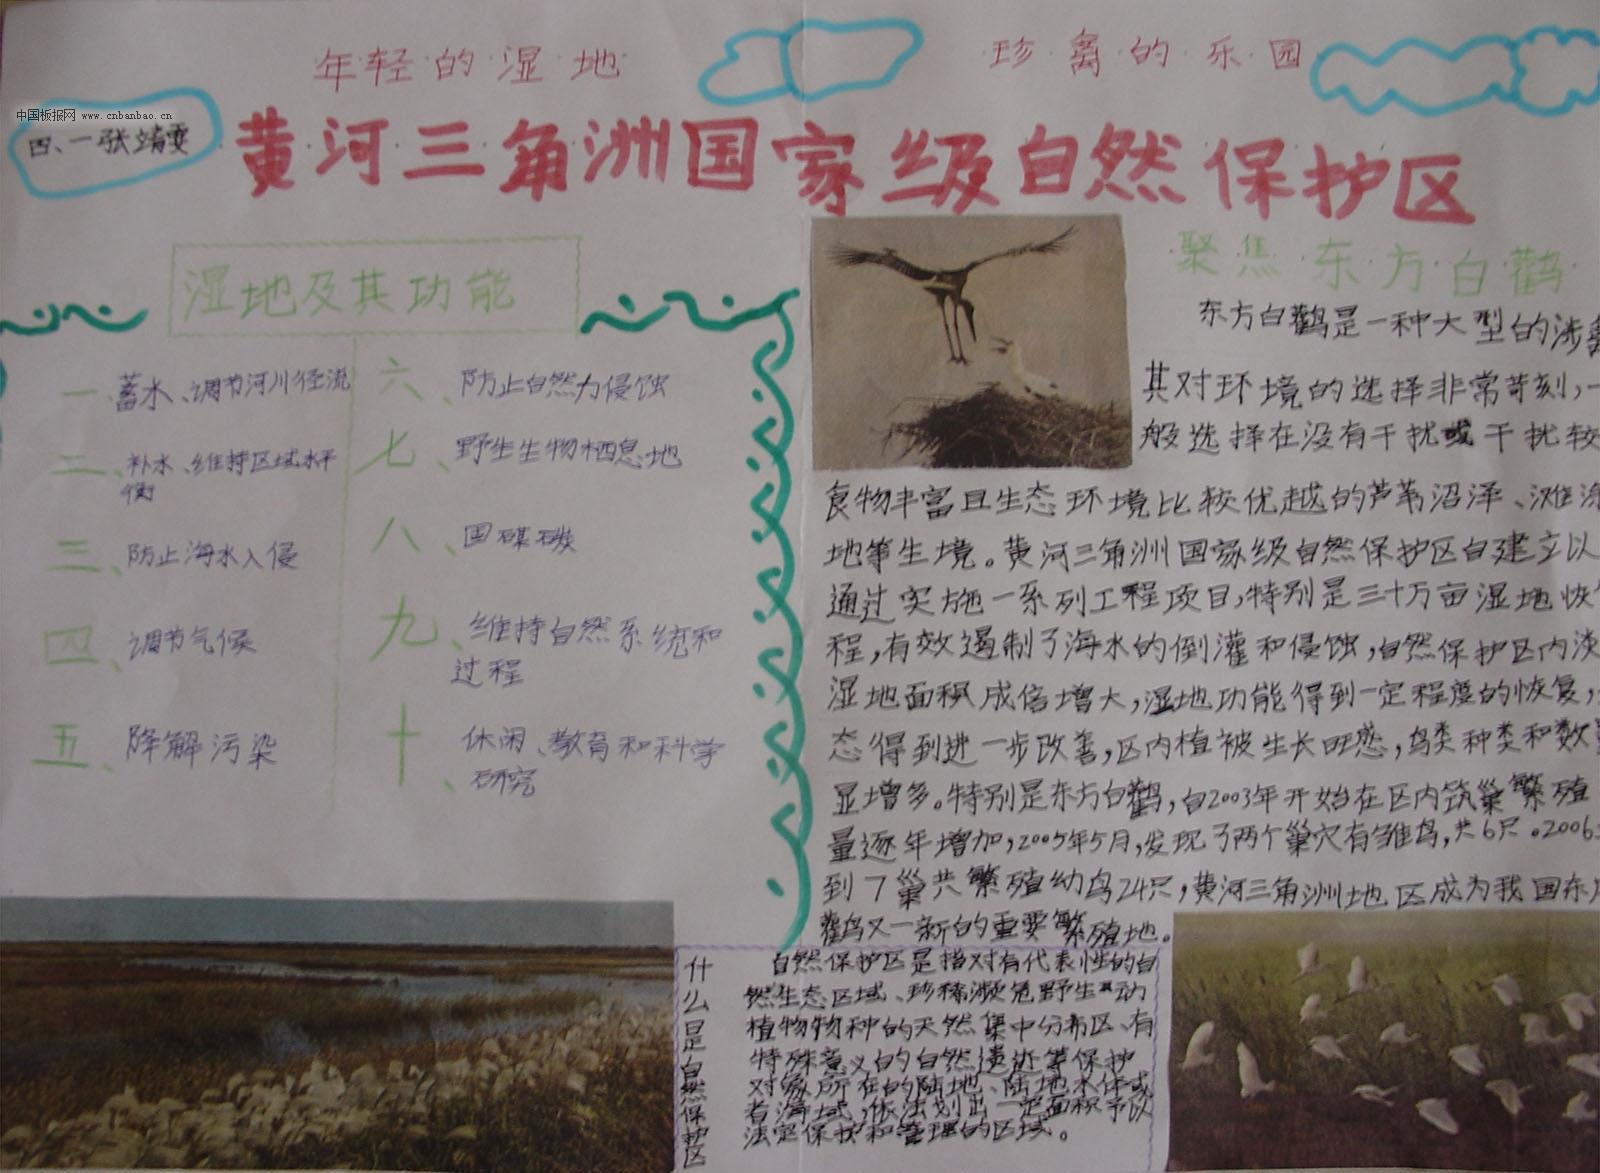 年轻的湿地
珍禽的乐园
中国板报网 www.cnbanbao.cn
四、一张靖雯
黄河三角洲国家级自然保护区
湿地及其功能
一、蓄水、调节河川径流
二、补水、维持区域水平
衡
三、防止海水入侵
四、调节气候
五、降解污染
六、防止自然力侵蚀
七、野生生物栖息地
八、固碟碳
九、维持自然系统和
过程
十、休闲、教育和科学
研究
聚焦东方白鹳
东方白鹳是一种大型的涉禽
其对环境的选择非常苛刻,一
般选择在没有干扰或干扰较
食物丰富且生态环境比较优越的芦苇沼泽、滩涂
地等生境。黄河三角洲国家级自然保护区自建立以
通过实施一系列工程项目,特别是三十万亩湿地恢
程,有效遏制了海水的倒灌和侵蚀,自然保护区内淡
湿地面积成倍增大,湿地功能得到一定程度的恢复,
态得到进一步改善,区内植被生长旺盛,鸟类种类和数量
显增多。特别是东方白鹳,自2003年开始在区内筑巢繁殖
量逐年增加,2005年5月,发现了两个巢穴有雏鸟,共6只。2006
到7巢共繁殖幼鸟24只,黄河三角洲地区成为我国东方
鹳鸟又一新的重要繁殖地。
什么是自然保护区
自然保护区是指对有代表性的自
然生态区域、珍稀濒危野生动
植物物种的天然集中分布区、有
特殊意义的自然遗迹等保护
对象所在的陆地、陆地水体或
者海域,依法划出一定面积予以
法定保护和管理的区域。